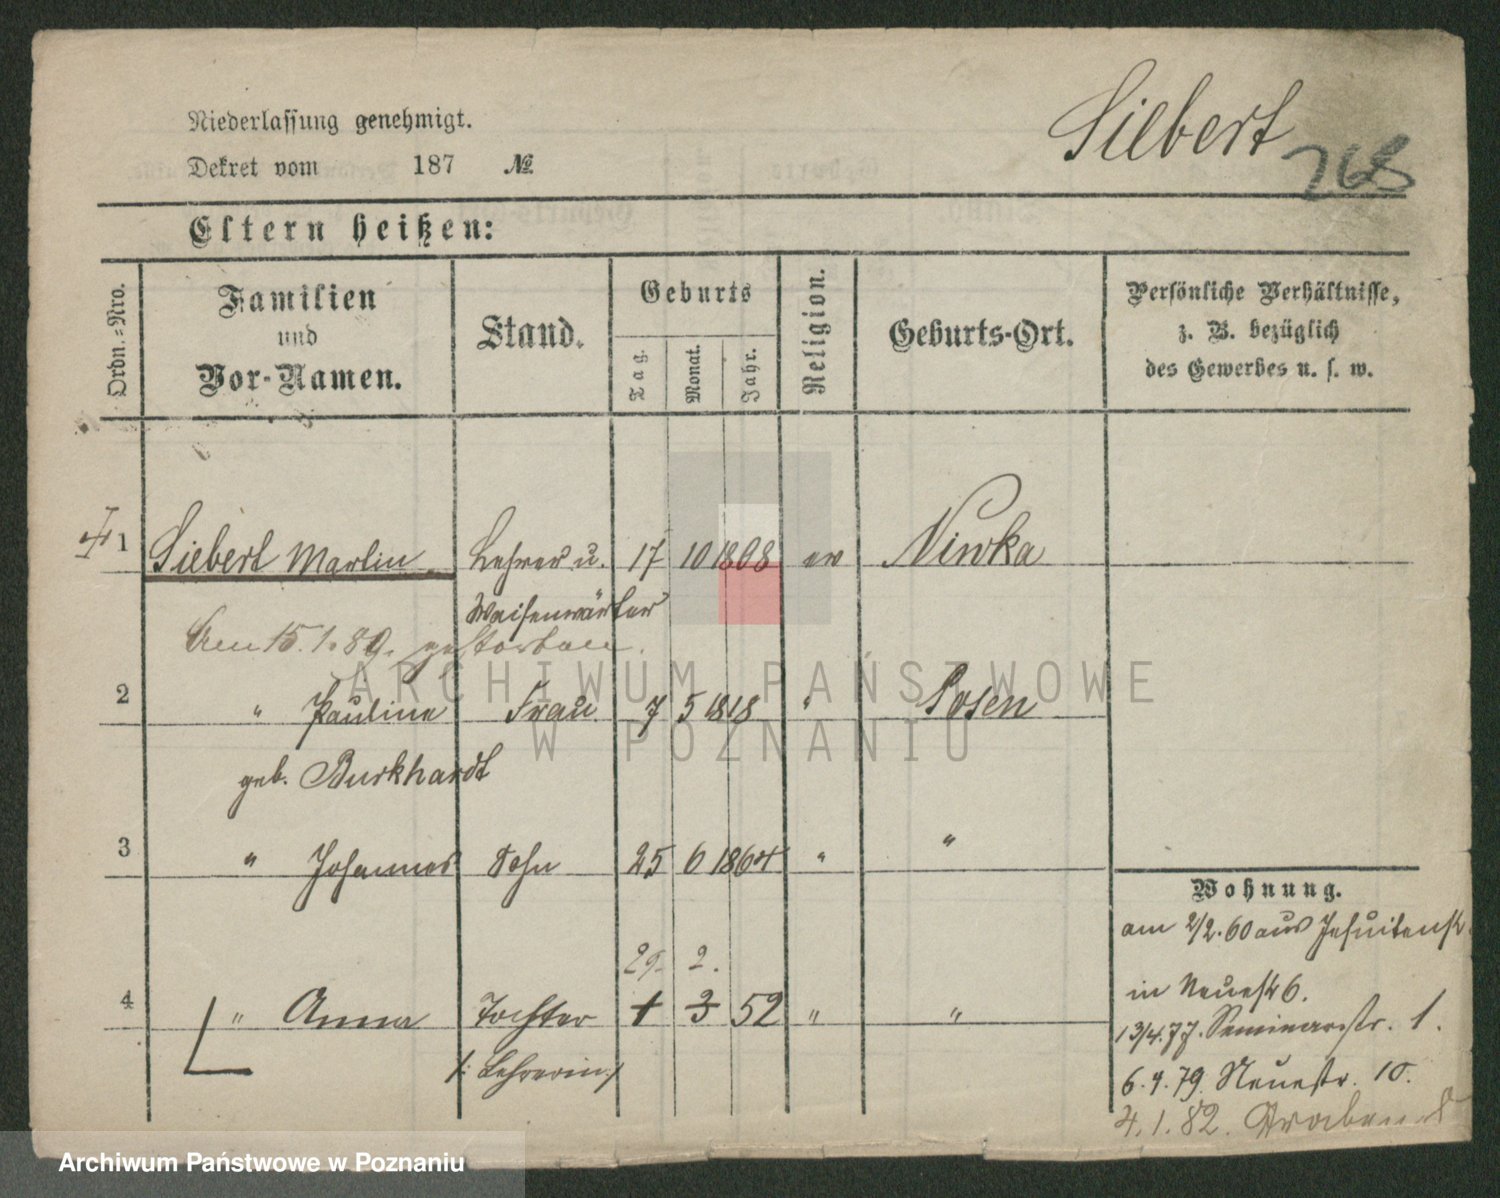 Siebert
Niederlassung genehmigt.
Dekret vom 187 №
268
Eltern heißen:
Ordn.-Nro.
Familien
und
Vor-Namen.
Stand.
Geburts
Tag.
Monat.
Jahr.
Religion.
Geburts-Ort.
Persönliche Verhältnisse,
z. B. bezüglich
des Gewerbes u. s. w.
1 Siebert Martin Lehrer u. 17 10 1808 ev Niwka
Waisenwärter
Am 15.1.89. gestorben.
2 " Pauline Frau. 7 5 1818 " Posen
geb. Burkhardt
3 " Johannes Sohn 25 6 1864 " "
29. 2.
4 " Anna Tochter 1 3 52 " "
/: Lehrerin :/
Wohnung.
am 2/2.60 aus Jesuitenstr.
in Neuestr 6.
13/4.77. Seminarstr. 1.
6.4.79. Neuestr. 10.
4.1.82. Graben
ARCHIWUM PAŃSTWOWE
W POZNANIU
Archiwum Państwowe w Poznaniu